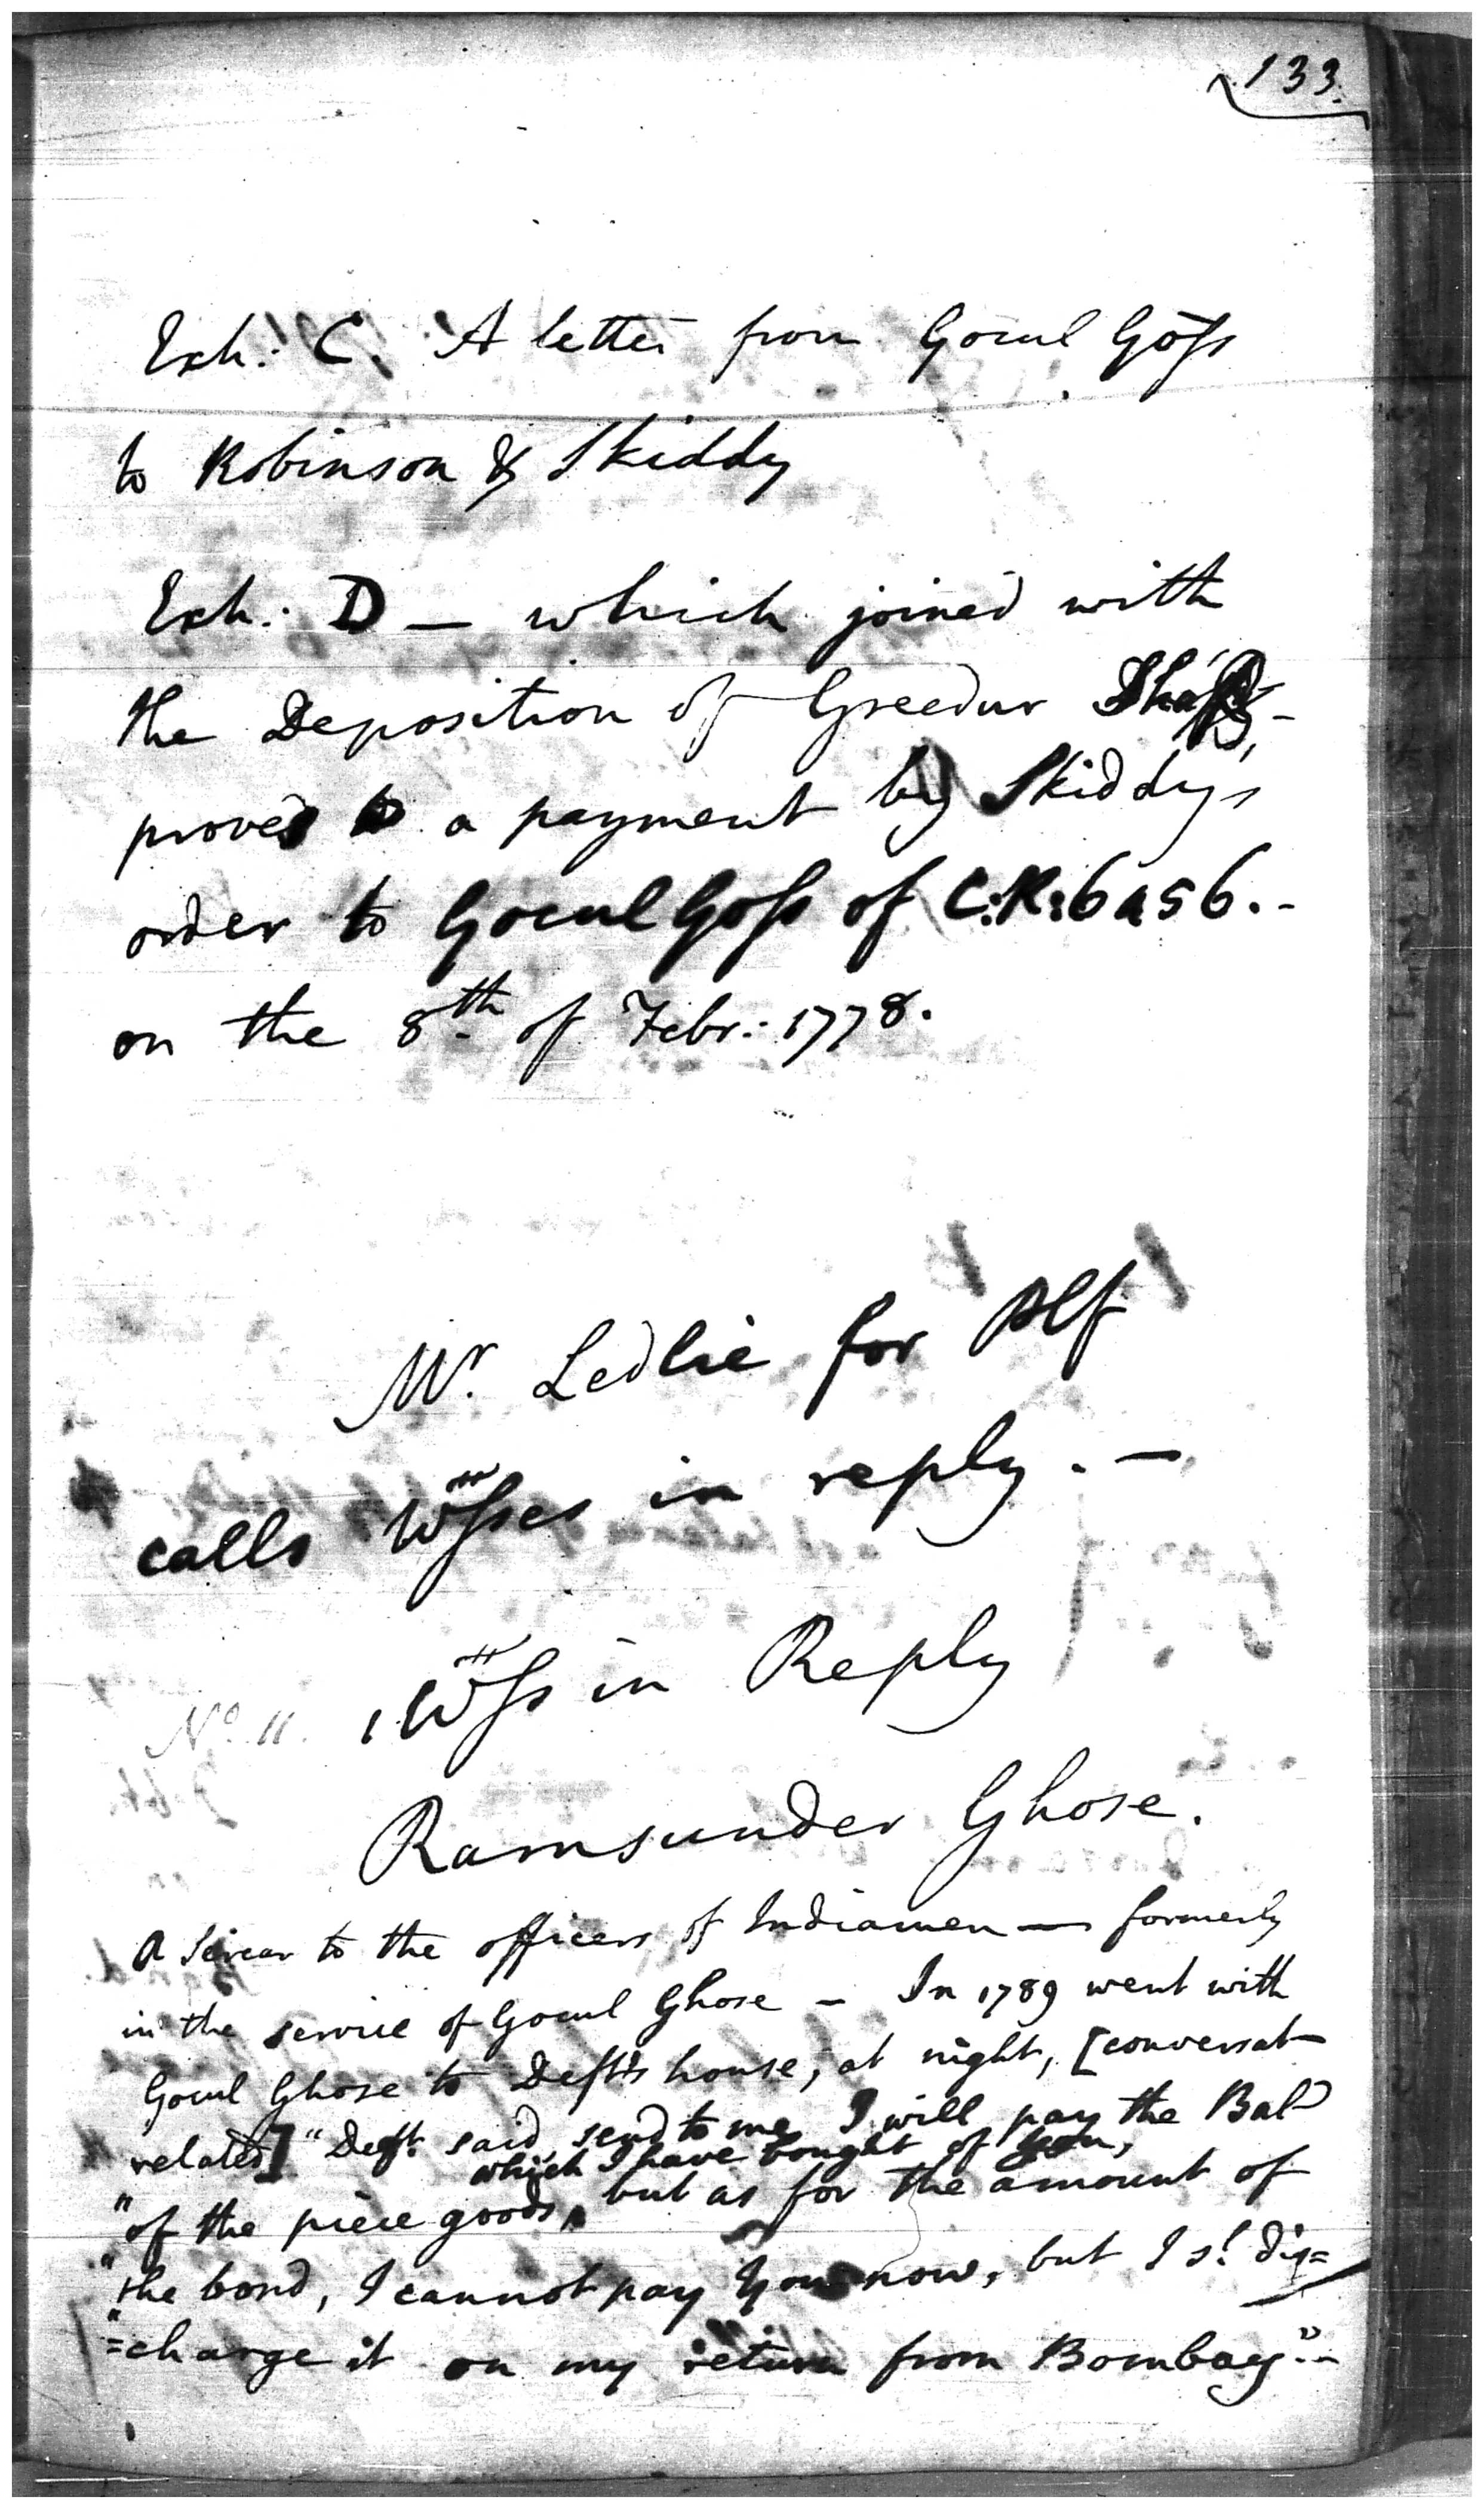 133.
Exh: C. A letter from Gocul Goss
to Robinson & Skiddy
Exh: D — which joined with
the Deposition of Greedur
proves a payment by Skiddys
order to Gocul Goss of C:R: 6 a 5 6.-
on the 8th of Febr: 1778.
Mr. Ledlie for Plf
calls Wsses in reply. —
No. 11. 1 Wss in Reply
Ramsunder Ghose.
A Sircar to the officers of Indiamen — formerly
in the service of Gocul Ghose — In 1789 went with
Gocul Ghose to Defts house, at night, [conversat
related] "Deft. said, send to me I will pay the Bal
which I have bought of you,
"of the piece goods, but as for the amount of
"the bond, I cannot pay you now, but I sl. dis=
"=charge it on my return from Bombay".-